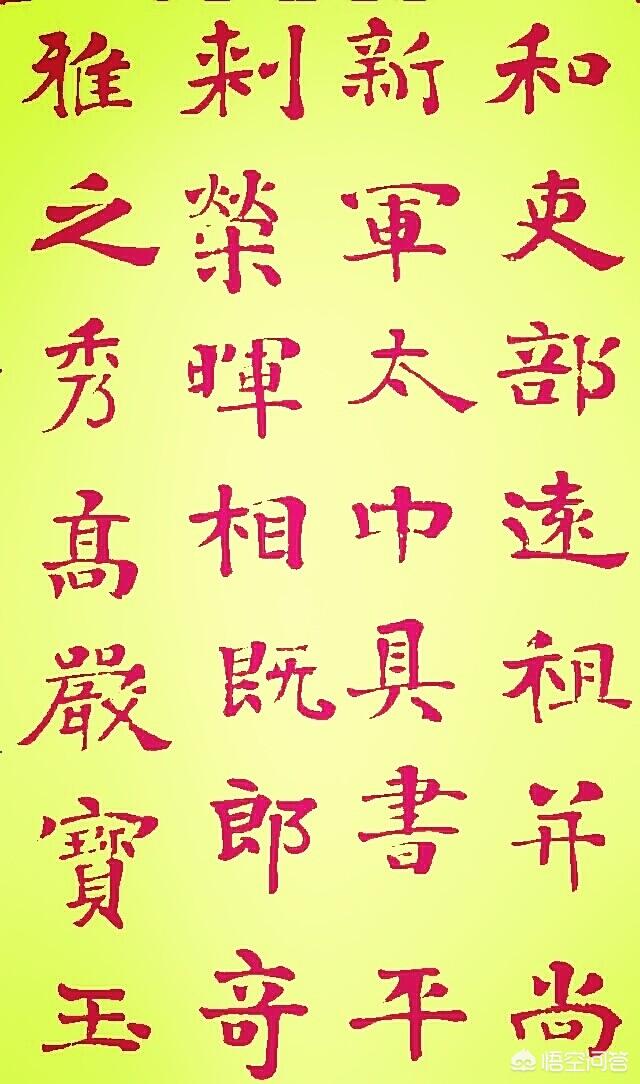 和吏部遠祖并尚
新軍太中具書平
刺榮暉相既郎奇
雅之秀高嚴寶玉
悟空问答